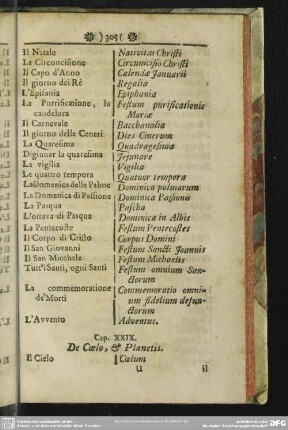 )305(
Il Natale Nativitas Christi
La Circoncisione Circumcisio Christi
Il Capo d'Anno Calendæ Januarii
Il giorno dei Rè Regalia
L'Epifania Epiphania
La Purificatione, la Festum purificationis
candelora Mariæ
Il Carnevale Bacchanalia
Il giorno delle Ceneri Dies Cinerum
La Quaresima Quadragesima
Digiunar la quaresima Jejunare
La vigilia Vigilia
Le quattro tempora Quatuor tempora
La Domenica delle Palme Dominica palmarum
La Domenica di Passione Dominica Passionis
La Pasqua Pascha
L'ottava di Pasqua Dominica in Albis
La Pentecoste Festum Pentecostes
Il Corpo di Cristo Corpus Domini
Il San Giovanni Festum Sancti Joannis
Il San Michele Festum Michaelis
Tutt'i Santi, ogni Santi Festum omnium San-
ctorum
La commemoratione Commemoratio omni-
de'Morti um fidelium defun-
ctorum
L'Avvento Adventus.
Cap. XXIX.
De Cœlo, & Planetis.
Il Cielo Cœlum
U il